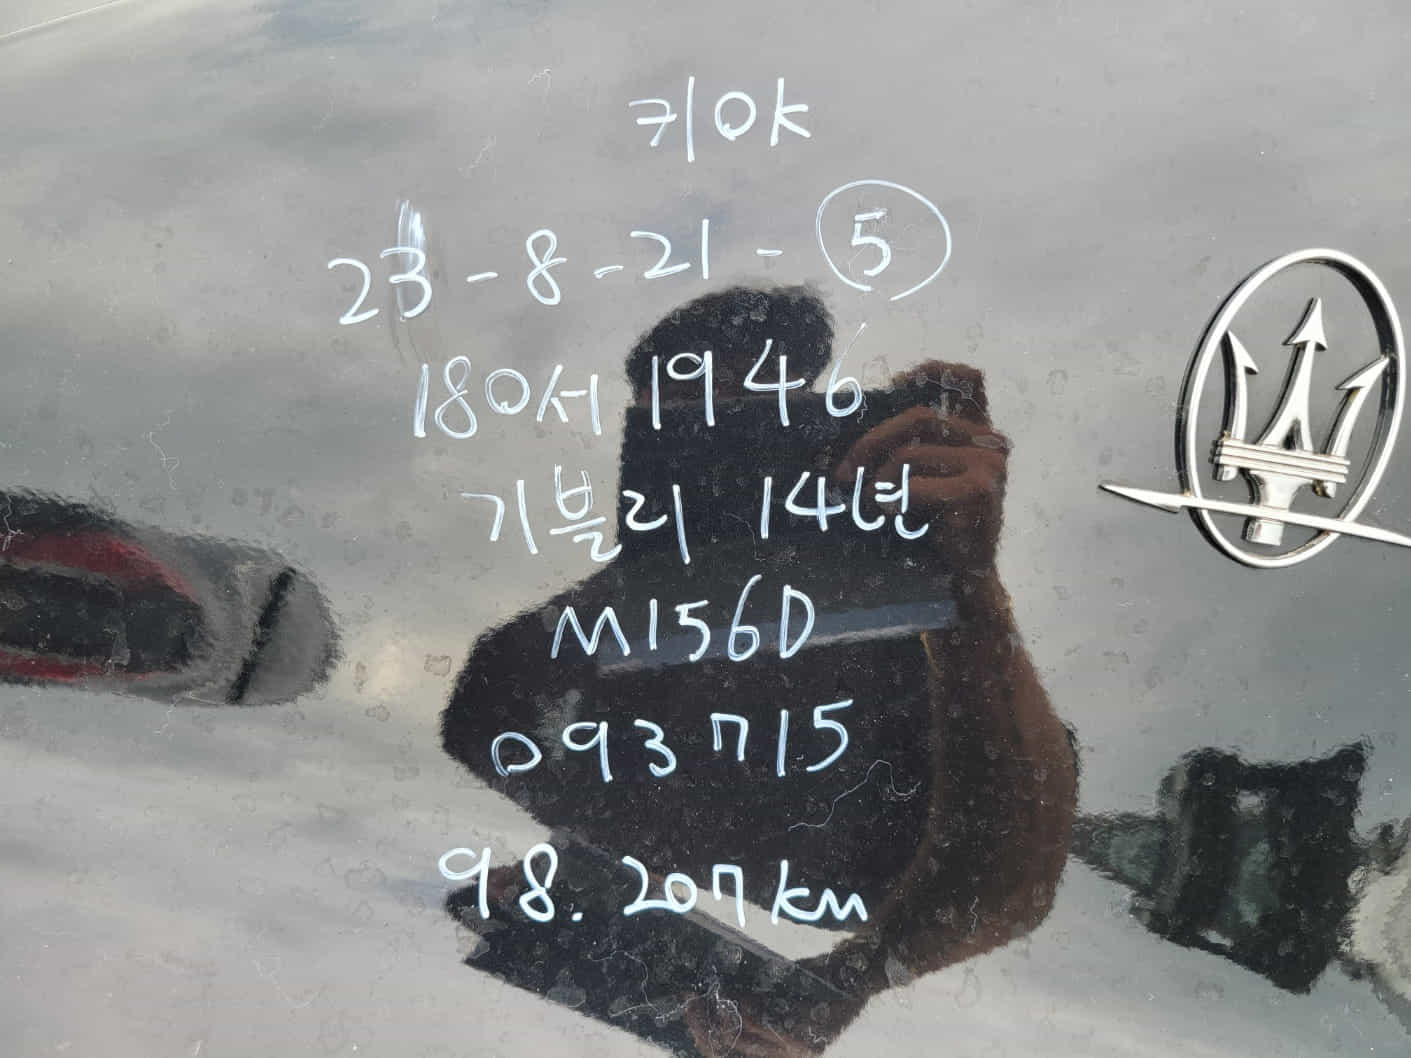 키OK
23-8-21-⑤
180서 1946
기블리 14년
M156D
093715
98.207km